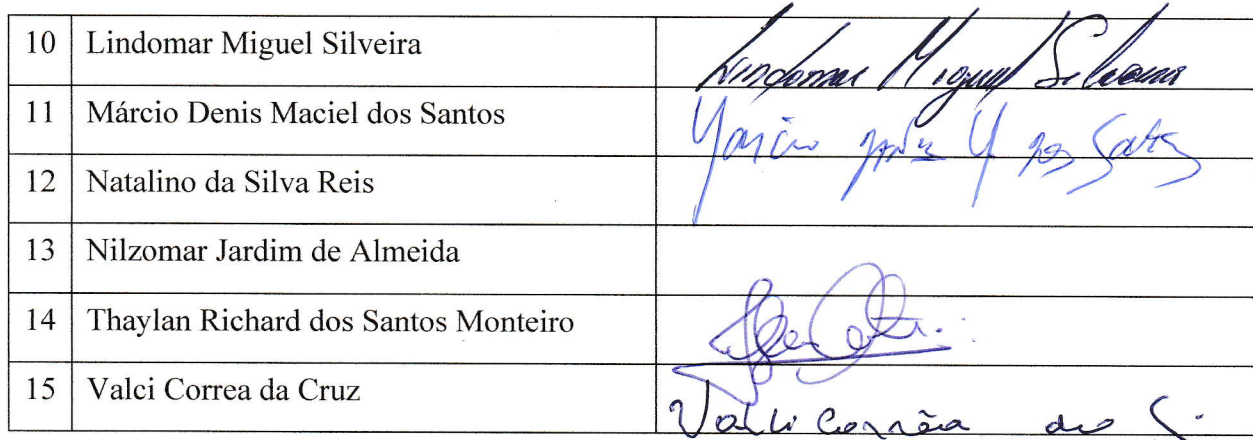 10 Lindomar Miguel Silveira Lindomar Miguel Silveira
11 Márcio Denis Maciel dos Santos Márcio Denis M dos Santos
12 Natalino da Silva Reis
13 Nilzomar Jardim de Almeida
14 Thaylan Richard dos Santos Monteiro
15 Valci Correa da Cruz Valci Corrêa da C.